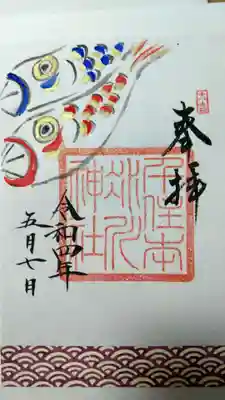 奉拝
千住本
氷川
神社
令和四年
五月七日